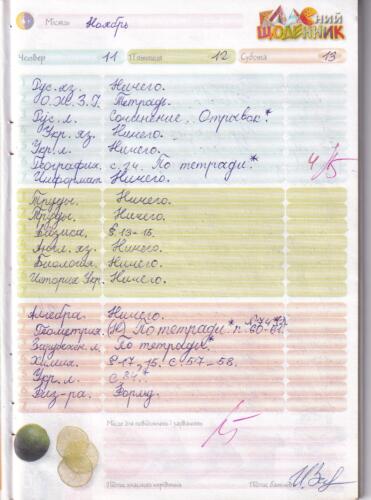 Місяць Ноябрь
КЛАСний ЩОДЕННИК
Четвер 11 П'ятниця 12 Субота 13
Рус. яз. Ничего.
О.Ж.З.Г. Тетрадь.
Рус. л. Сочинение, Отрывок.*
Укр. яз. Ничего.
Укр. л. Ничего.
География. с. 24. По тетради.* 4/5
Информат. Ничего.
Труды. Ничего.
Труды. Ничего.
Физика. § 13-15.
Англ. яз. Ничего.
Биология. Ничего.
История Укр. Ничего.
Алгебра. Ничего.
Геометрия. По тетради.* п. 60-61.
Зарубежн. л. По тетради.*
Химия. §17, 15. С. 57-58.
Укр. л.
Физ-ра. Форму.
Місце для повідомлень і зауважень
Підпис класного керівника Підпис батьків